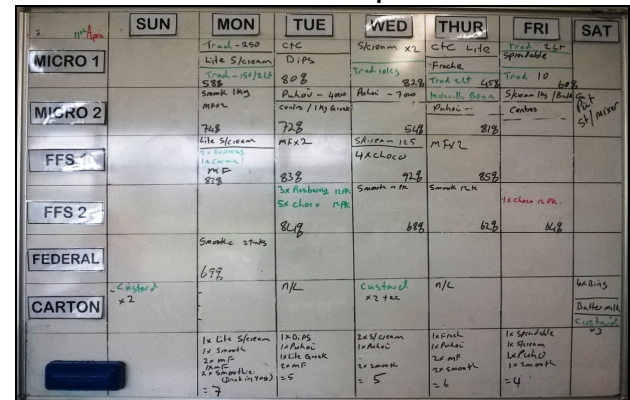 11th April
SUN MON TUE WED THUR FRI SAT
MICRO 1
Trad - 250
Lite S/cream
Trad - 150/2Lt
58%
CtC
Dips
80%
S/cream x2
Trad 10kg
82%
CtC Lite
Frache
Trad 2Lt 45%
Trad 2Lt
Spreadable
Trad 10
60%
MICRO 2
Smooth 1kg
MFx2
74%
Puhoi - 4000
Centos / 1kg Greek
72%
Puhoi - 7000
54%
Puhoi -
81%
S/cream 1kg / Bulk
Centos
st/mixer
FFS 1
Lite S/cream
MF
83%
MFx2
83%
S/cream - 125
4x choco
92%
MFx2
85%
FFS 2
3x Rasberry 12Pk
5x choco 12Pk
84%
Smooth 12Pk
68%
Smooth 12k
62%
1x Choco 12 Pk.
64%
FEDERAL
Smoothie 2tnks
69%
CARTON
Custard
x2
n/L
Custard
n/L
4x Bins
Buttermilk
Custard
x3
1x Lite S/cream
1x Smooth
2x MF
2x Smoothie
(Drink in Yog)
= 7
1x Dips
1x Puhoi
1x Lite Greek
2x MF
= 5
2x S/cream
1x Puhoi
2x smooth
= 5
1x Frach
1x Puhoi
2x MF
2x smooth
= 6
1x Spreadable
1x S/cream
1x Puho
1x Smooth
= 4